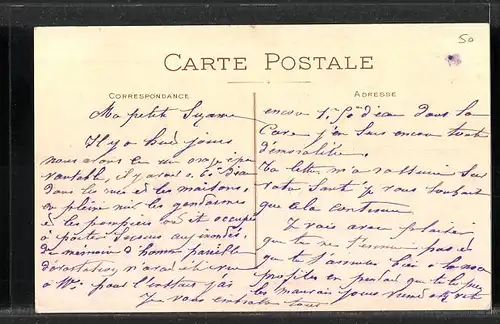 50
CARTE POSTALE
CORRESPONDANCE
ADRESSE
Ma petit Suzanne
Il y a huit jours
nous avons eu un orage épou
vantable, il y avait 1.60 d'eau
dans les rues et les maisons,
en pleine nuit les gendarmes
et les pompiers ont et occupés
à porter secours aux inondés,
de memoire d'homme pareille
dévastation n'avait et vue
à pour l'instant j'ai
encore 1m 50 d'eau dans la
Cave j'en suis encore toute
démoralisée.
Ta lettre m'a rassuré sur
votre santé je vous souhait
que cela continue.
Je vois avec plaisir
que tu ne pas et
que tu t'amuses bien
profites en pendant que tu le peux
les mauvais jours vite
Je vous embrasse tous